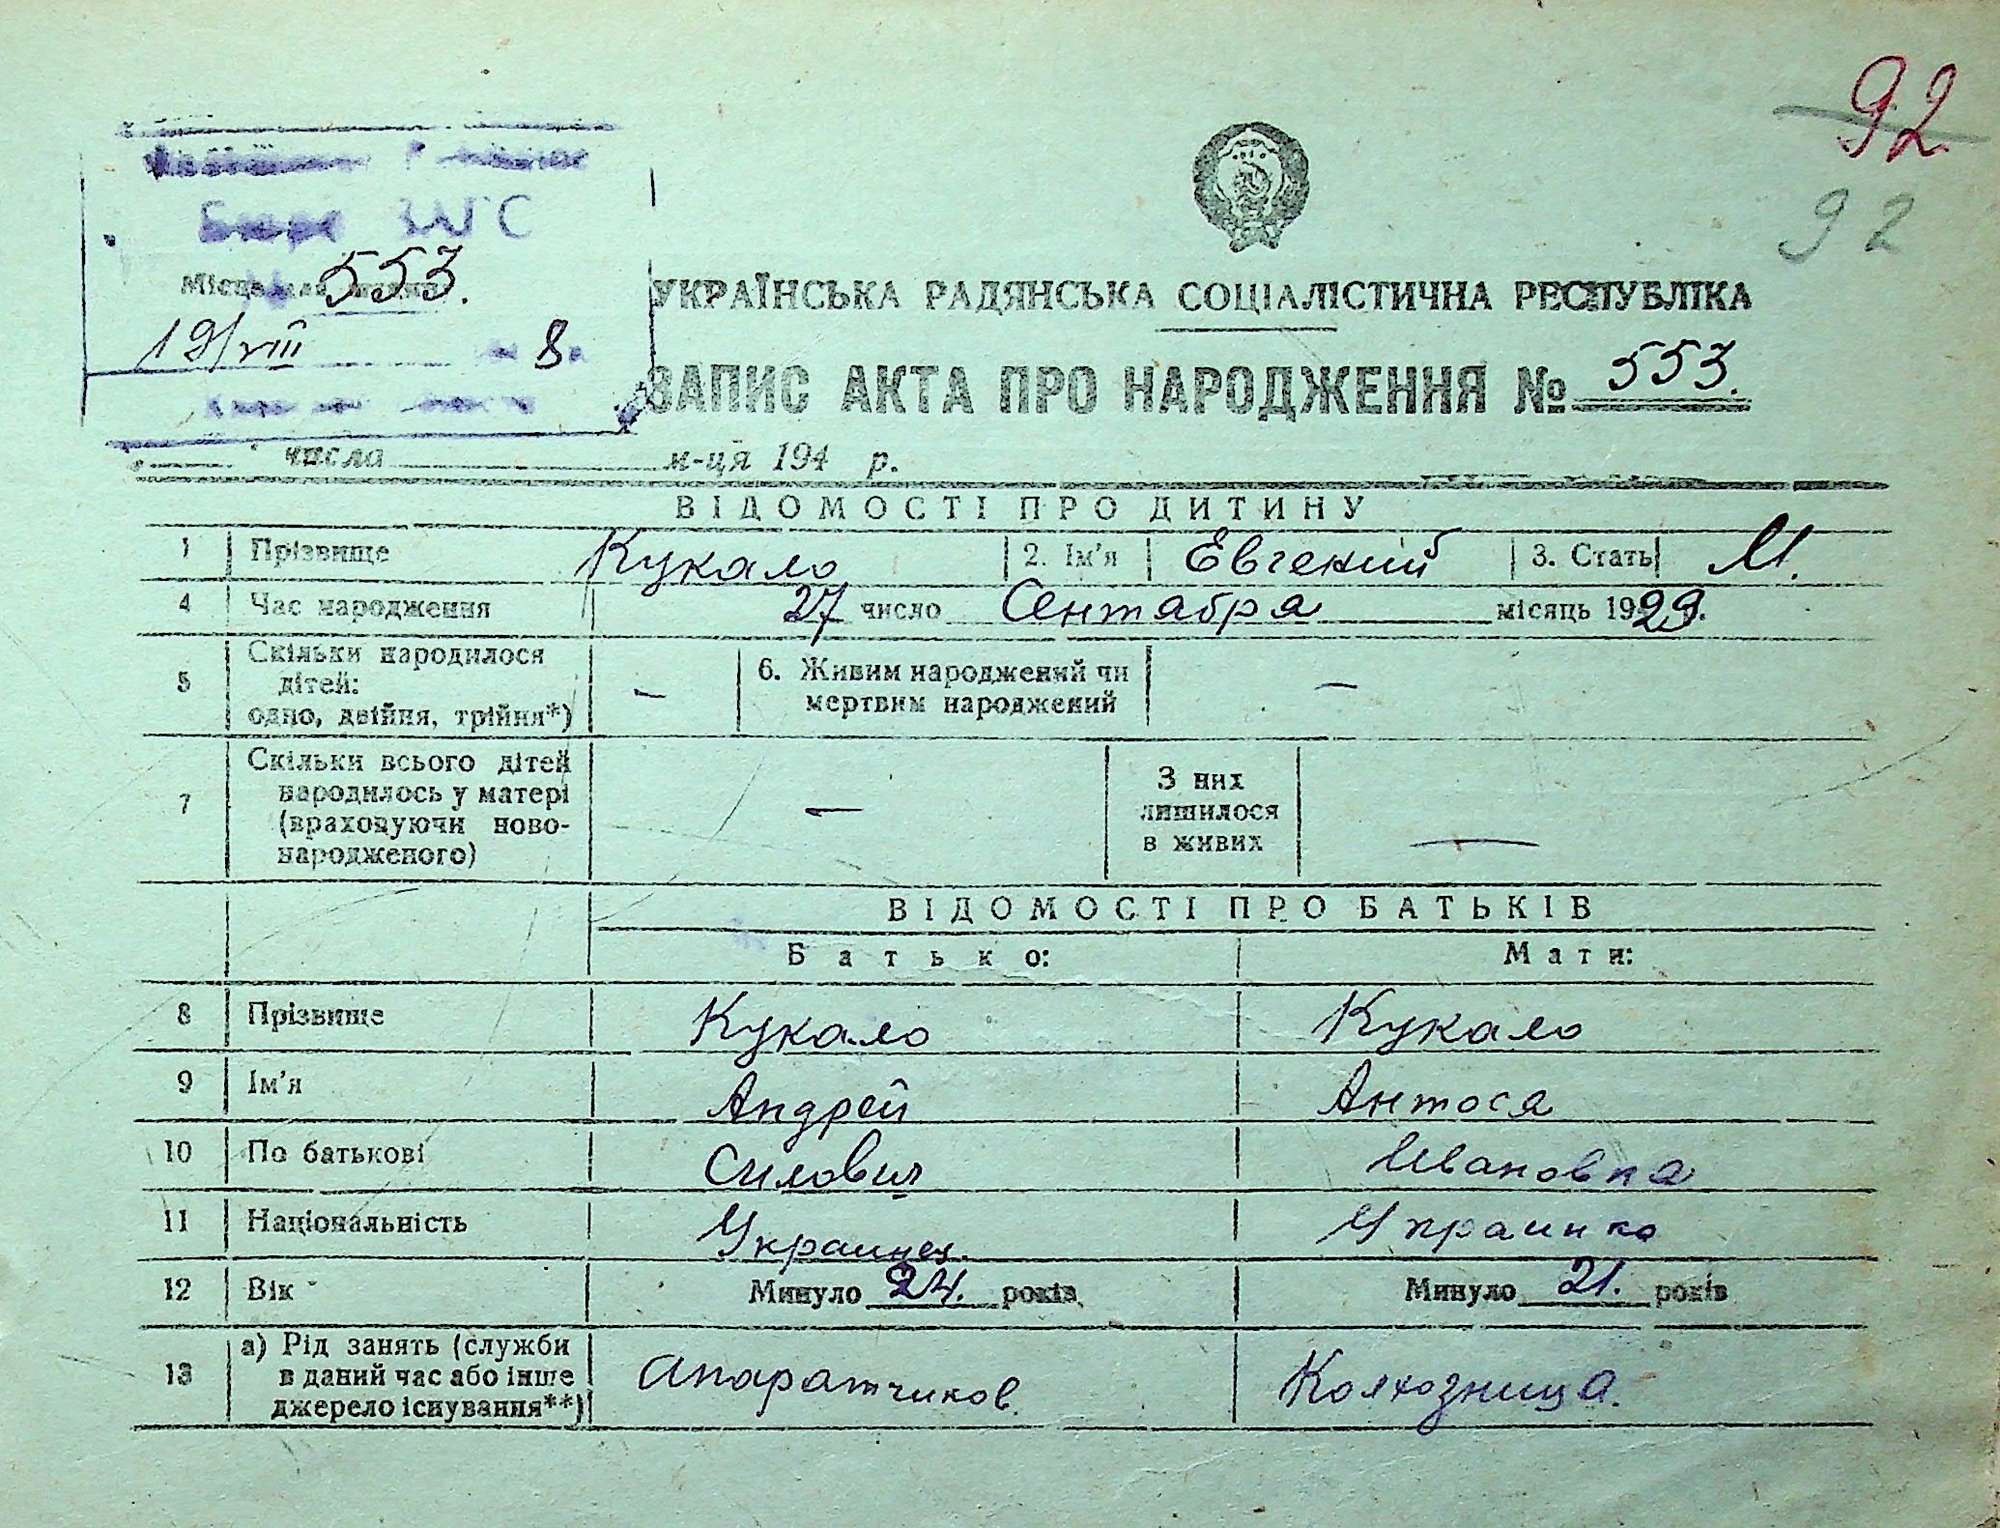 92
92
Бюро ЗАГС
553.
19/VIII 8
УКРАЇНСЬКА РАДЯНСЬКА СОЦІАЛІСТИЧНА РЕСПУБЛІКА
ЗАПИС АКТА ПРО НАРОДЖЕННЯ № 553.
числа м-ця 194 р.
ВІДОМОСТІ ПРО ДИТИНУ
1 Прізвище Кукало 2. Ім'я Евгений 3. Стать М.
4 Час народження 27 число Сентября місяць 1929.
5 Скільки народилося дітей: одно, двійня, трійня*) — 6. Живим народжений чи мертвим народжений —
7 Скільки всього дітей народилось у матері (враховуючи ново-народженого) — З них лишилося в живих —
ВІДОМОСТІ ПРО БАТЬКІВ
Батько: Мати:
8 Прізвище Кукало Кукало
9 Ім'я Андрей Антося
10 По батькові Силович Ивановна
11 Національність Украинец. Украинка
12 Вік Минуло 24. років Минуло 21. років
13 а) Рід занять (служби в даний час або інше джерело існування**) Апаратчиков. Колхозница.